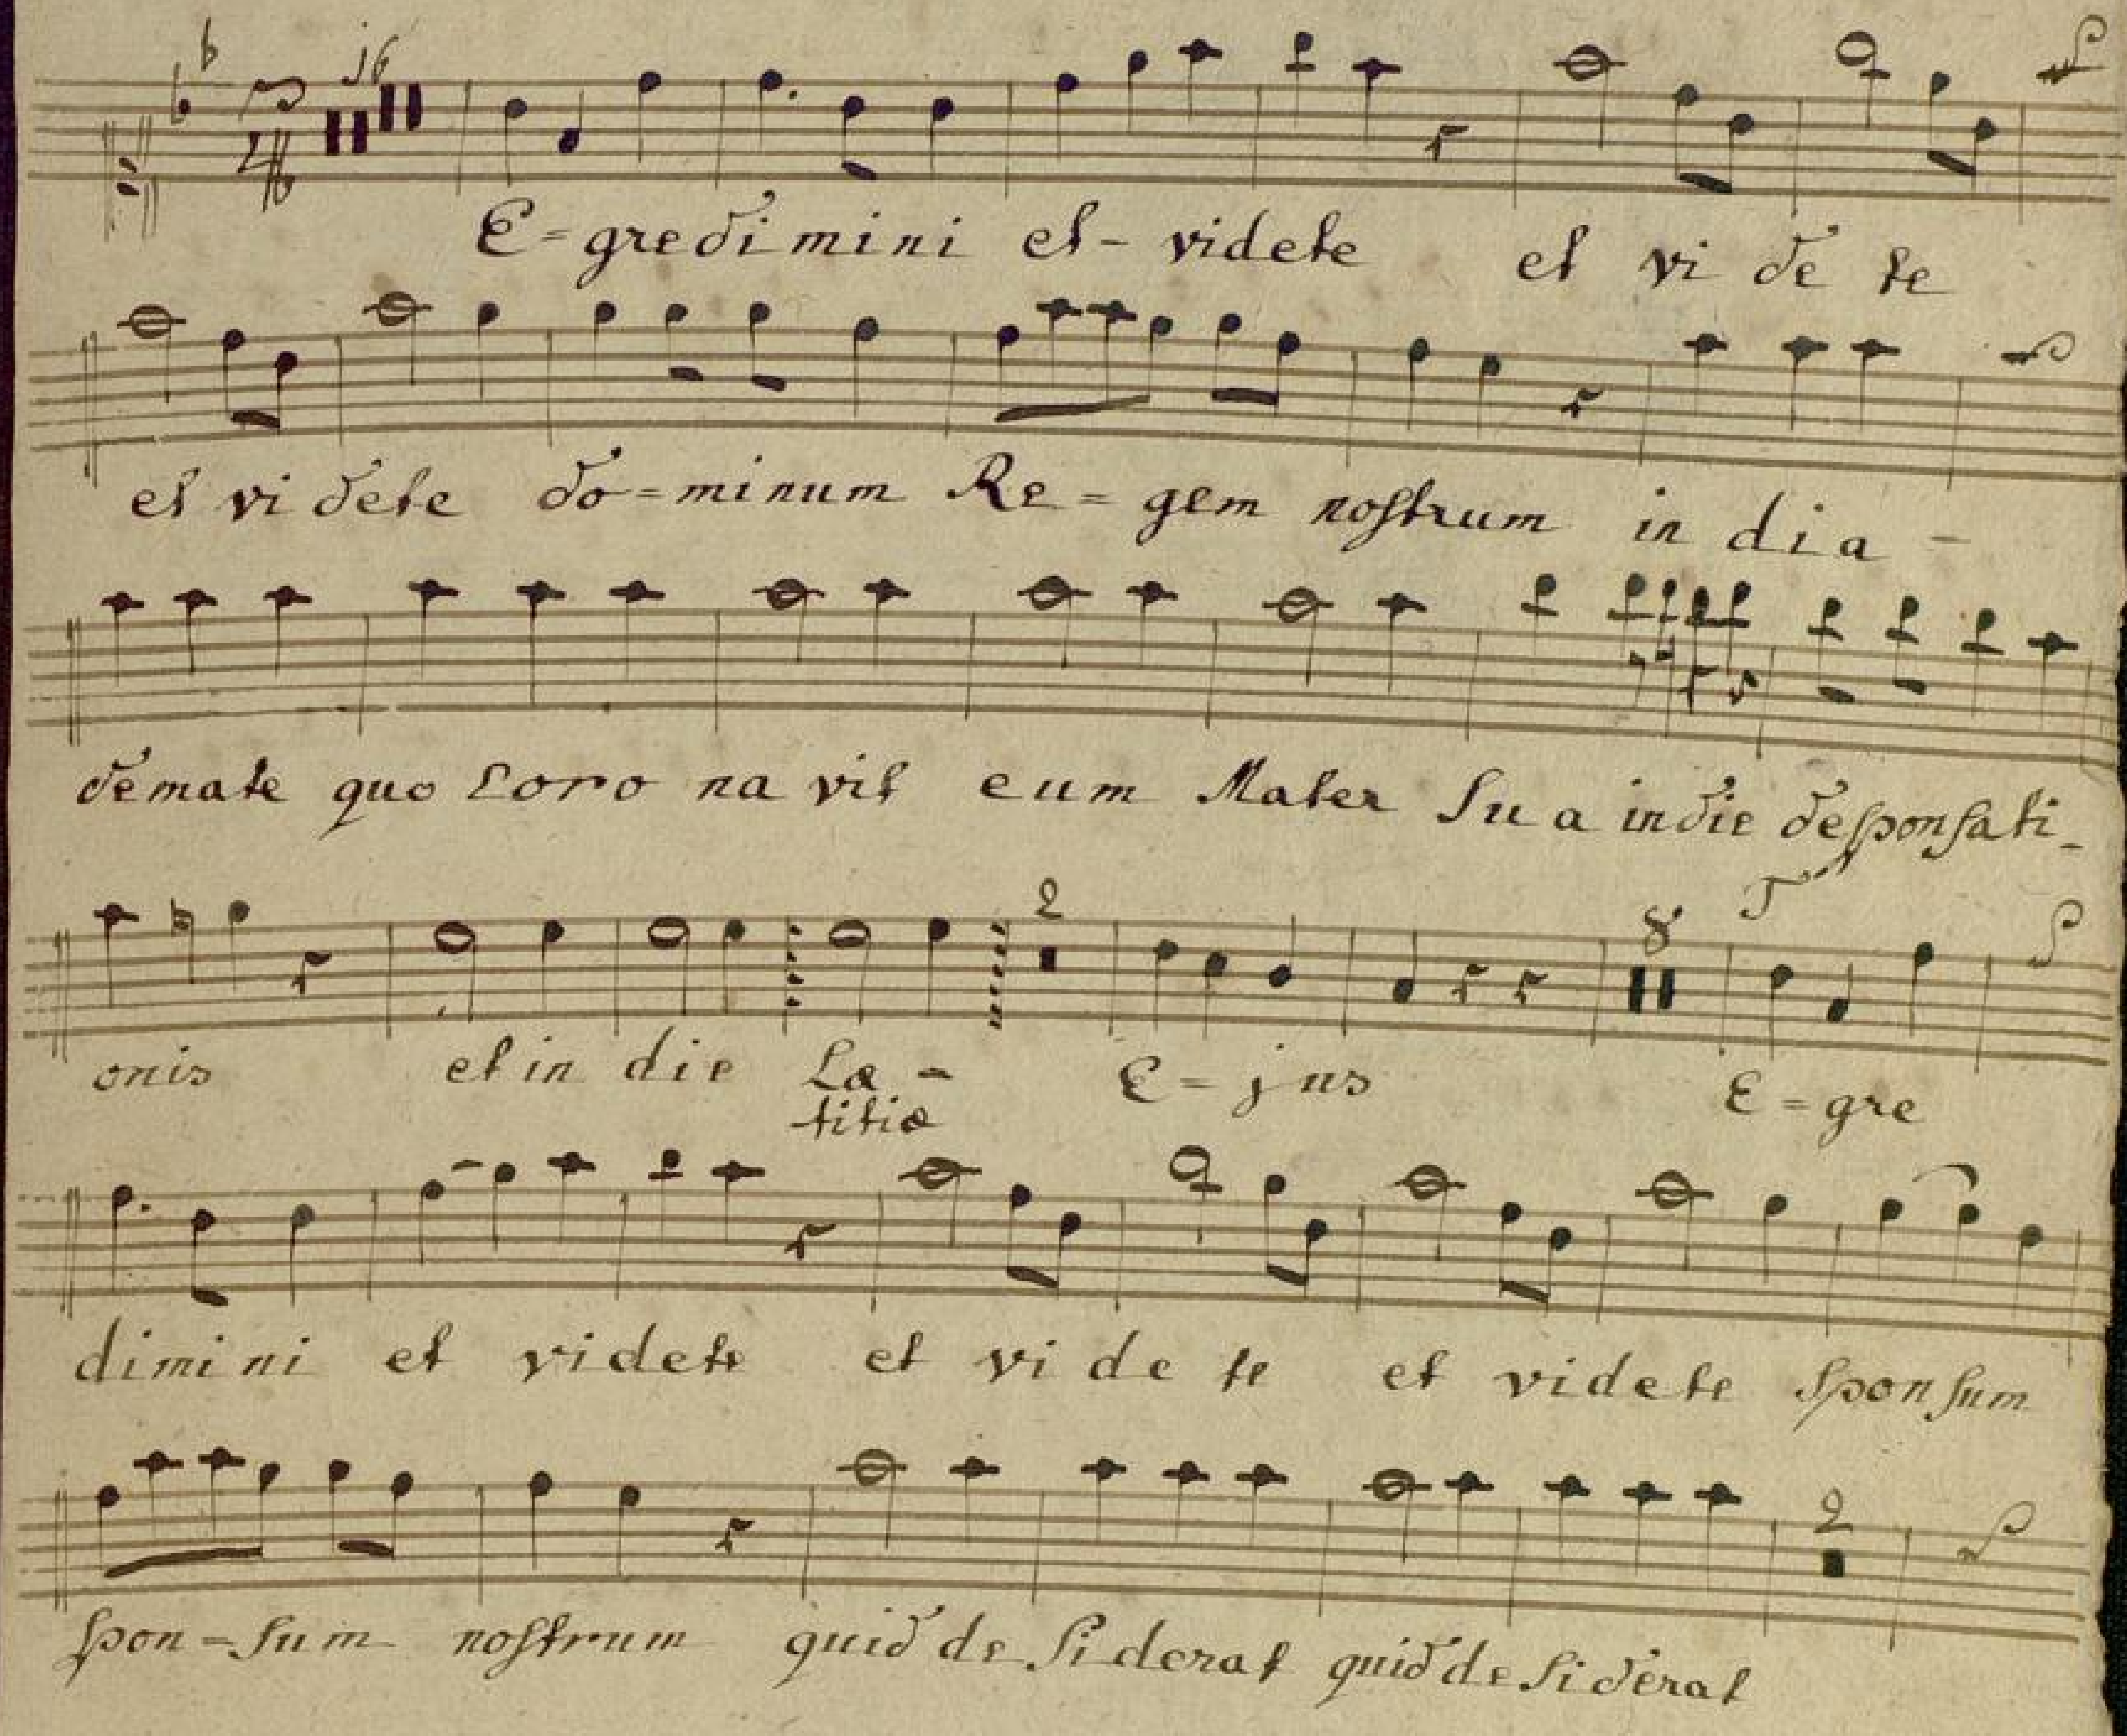 16
E=gredimini et- videte et vi de te
et vi dete do=minum Re=gem nostrum in dia -
demate quo Coro na vit eum Mater Su a in die desponsati-
2 8 T
onis et in die Læ - E=jus E=gre
titiæ
dimini et videte et vi de te et videte Sponsum
2
spon=sum nostrum quid de Siderat quid de Siderat